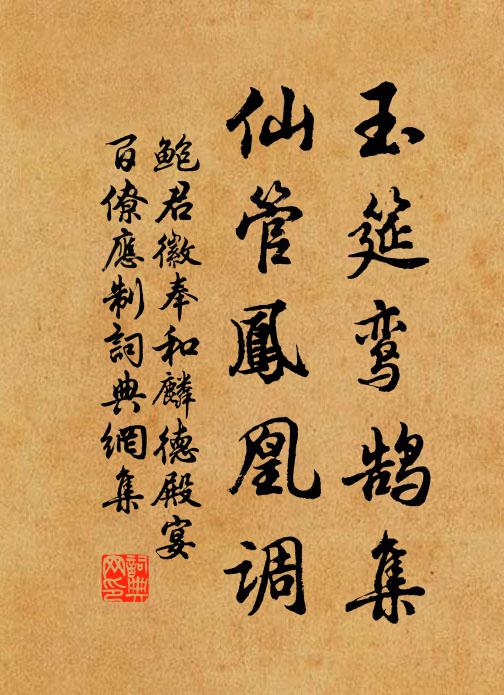 玉筵鸾鹄集
仙管鳳凰调
鲍君徽奉和麟德殿宴
百僚應制詞典網集
詞典网印